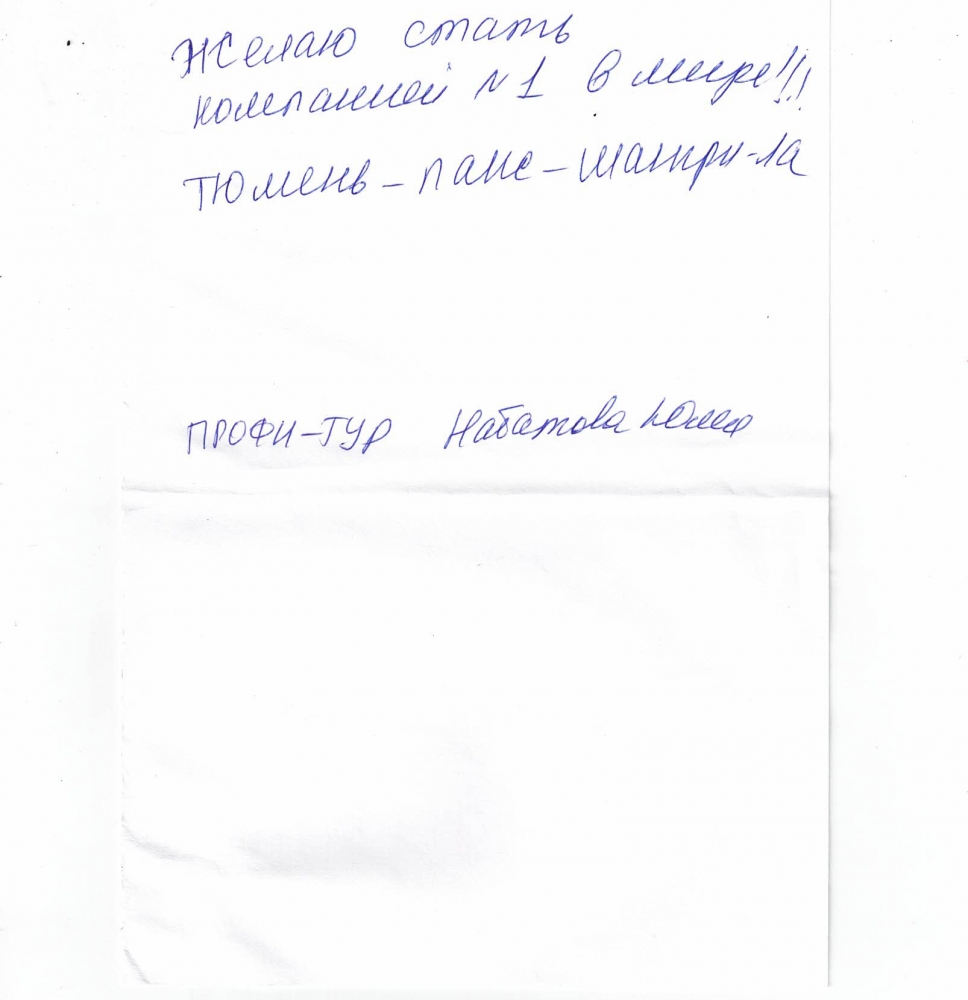 Желаю стать
компанией №1 в мире!!!
Тюмень – пакс – шангри-ла
ПРОФИ-ТУР Набатова Юлия